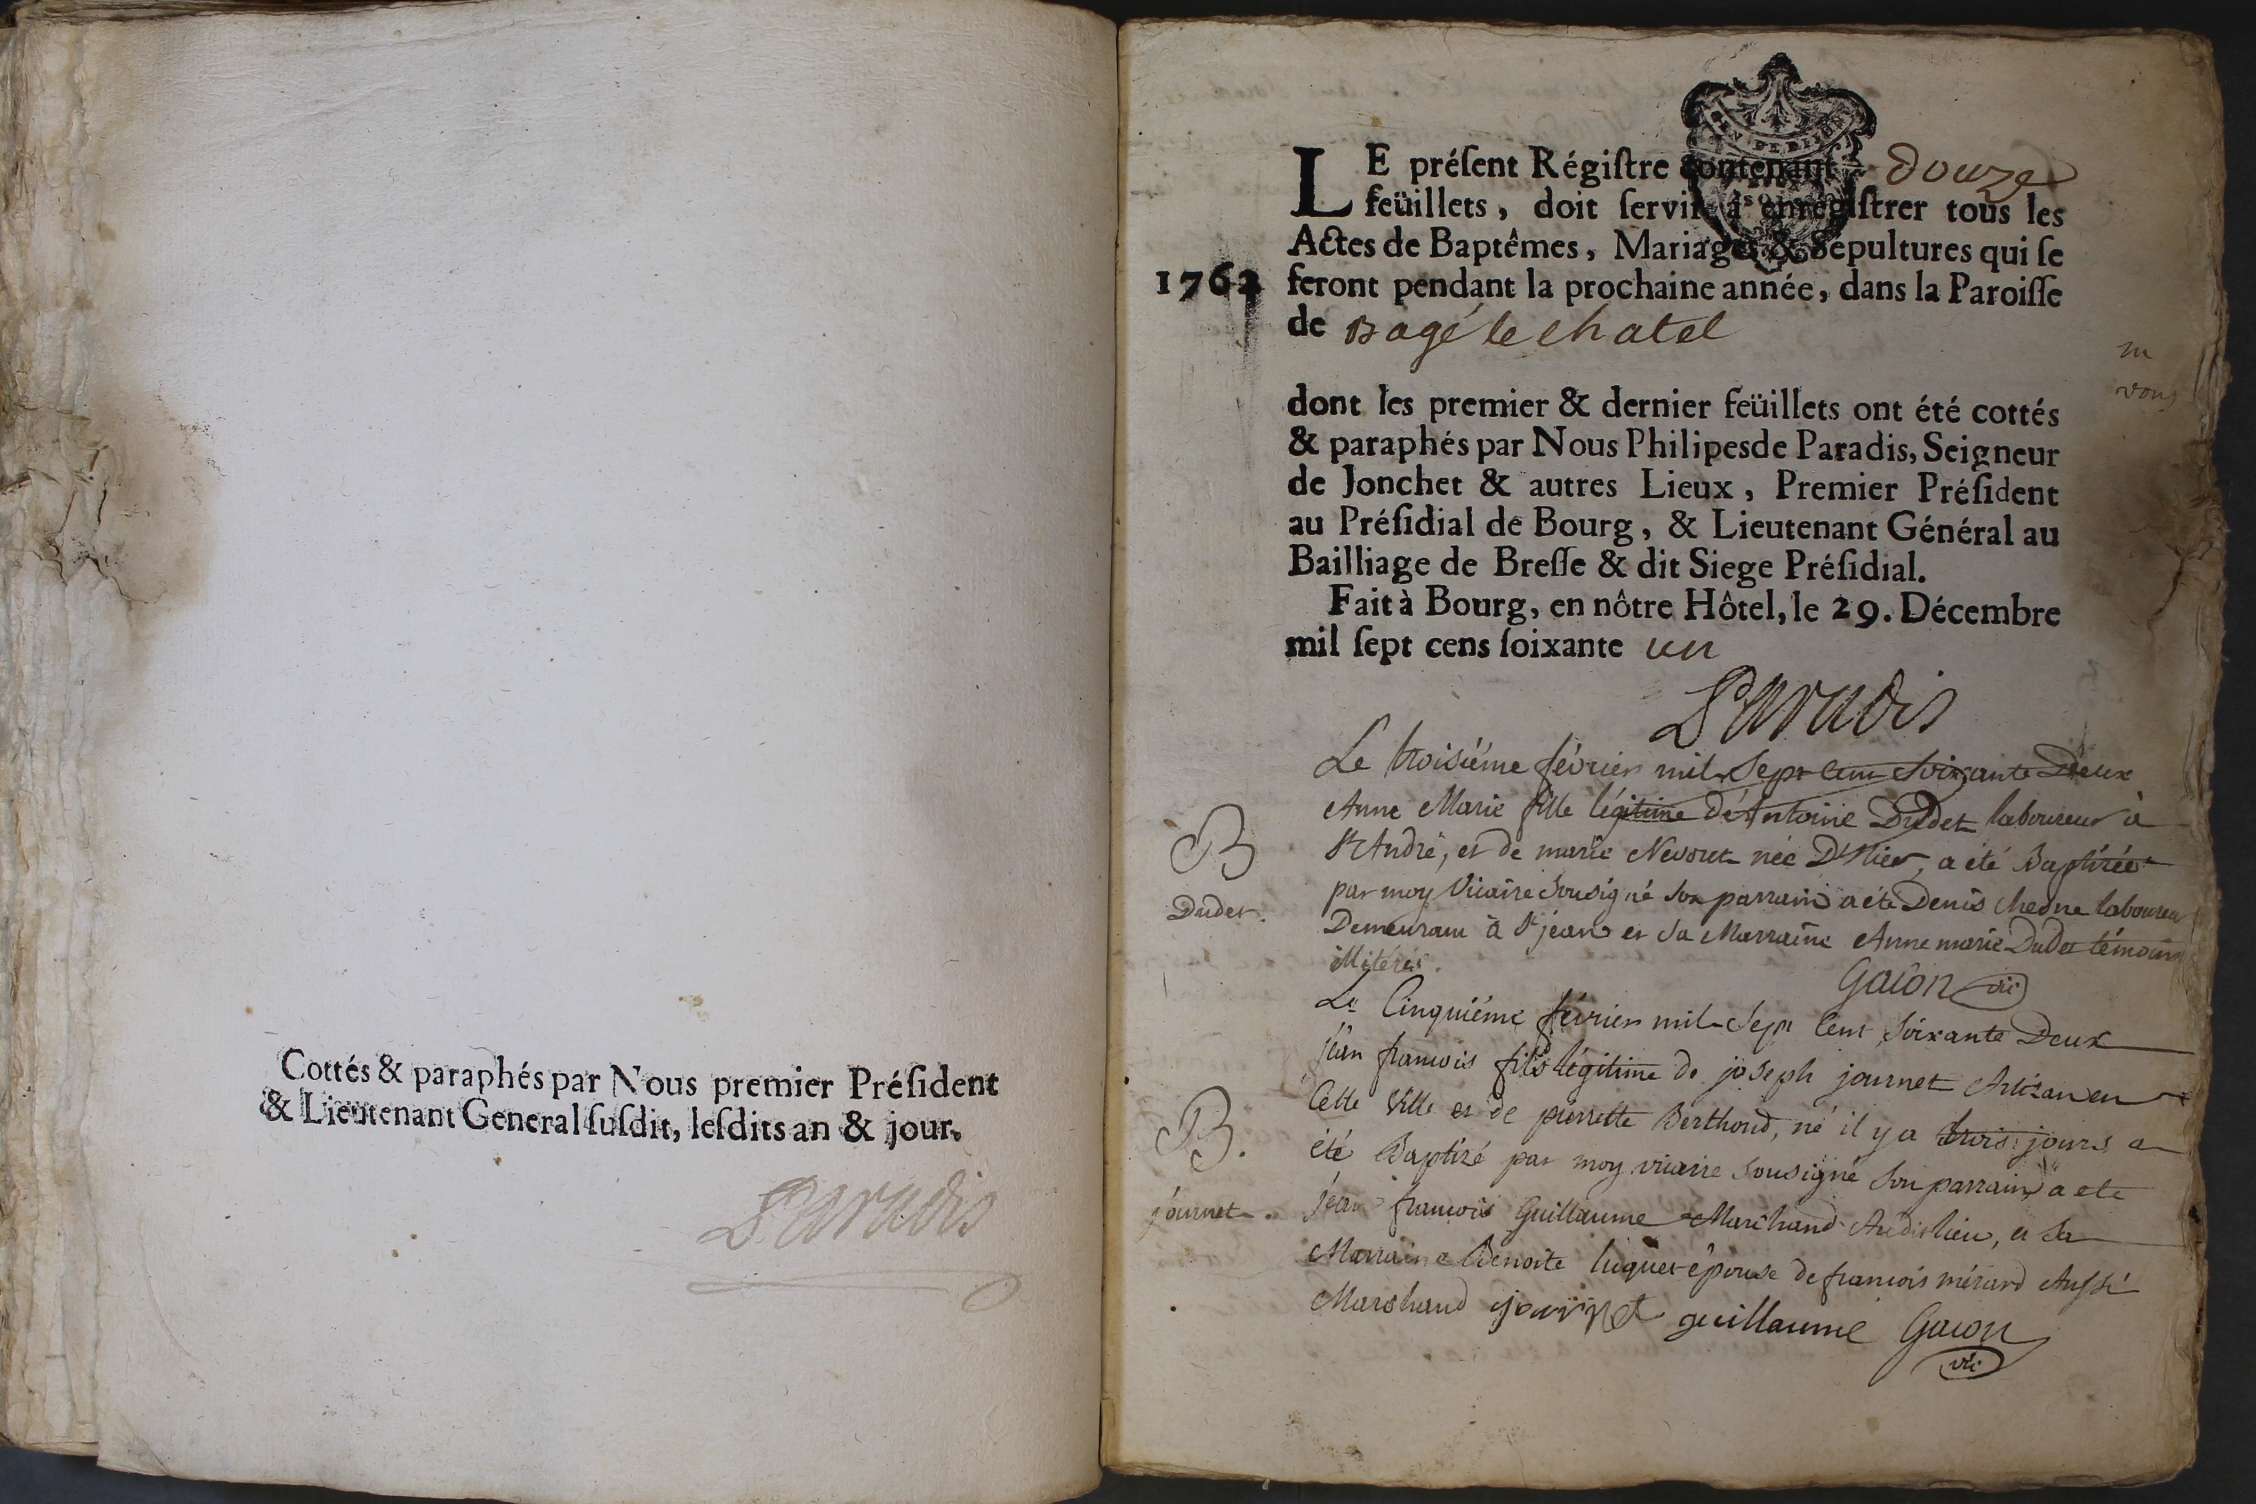 Cottés & paraphés par Nous premier Préſident
& Lieutenant General ſuſdit, leſdits an & jour.
Paradis
GEN DE DIJON
LE préſent Régiſtre contenant douze
feüillets, doit ſervir à enregiſtrer tous les
Actes de Baptêmes, Mariages & Sepultures qui ſe
1762 feront pendant la prochaine année, dans la Paroiſſe
de Bagé le chatel
dont les premier & dernier feüillets ont été cottés
& paraphés par Nous Philipes de Paradis, Seigneur
de Jonchet & autres Lieux, Premier Préſident
au Préſidial de Bourg, & Lieutenant Général au
Bailliage de Breſſe & dit Siege Préſidial.
Fait à Bourg, en nôtre Hôtel, le 29. Décembre
mil ſept cens ſoixante un
Paradis
Le troisiéme février mil Sept Cent Soixante Deux
Anne Marie fille légitime d'Antoine Dudet laboureur à
St André, et de marie née D'hier, a été Baptisée
par moy Vicaire Sousigné son parrain a été Denis chesne laboureur
Demeurant à St jean et Sa Marraine Anne marie Dudet témoins
illitérés.
Gacon vic
B
Dudet.
Le Cinquiéme février mil Sept Cent Soixante Deux
jean francois fils légitime de joseph journet Artisan en
Cette Ville et de pierrette Berthoud, né il y a trois jours a
été Baptizé par moy vicaire Sousigné Son parrain a eté
jean francois Guillaume Marchand Audit lieu, et Sa
Marraine Benoite luquet épouse de francois mérard Aussi
Marchand journet guillaume Gacon
vic
B.
journet.
m
vous